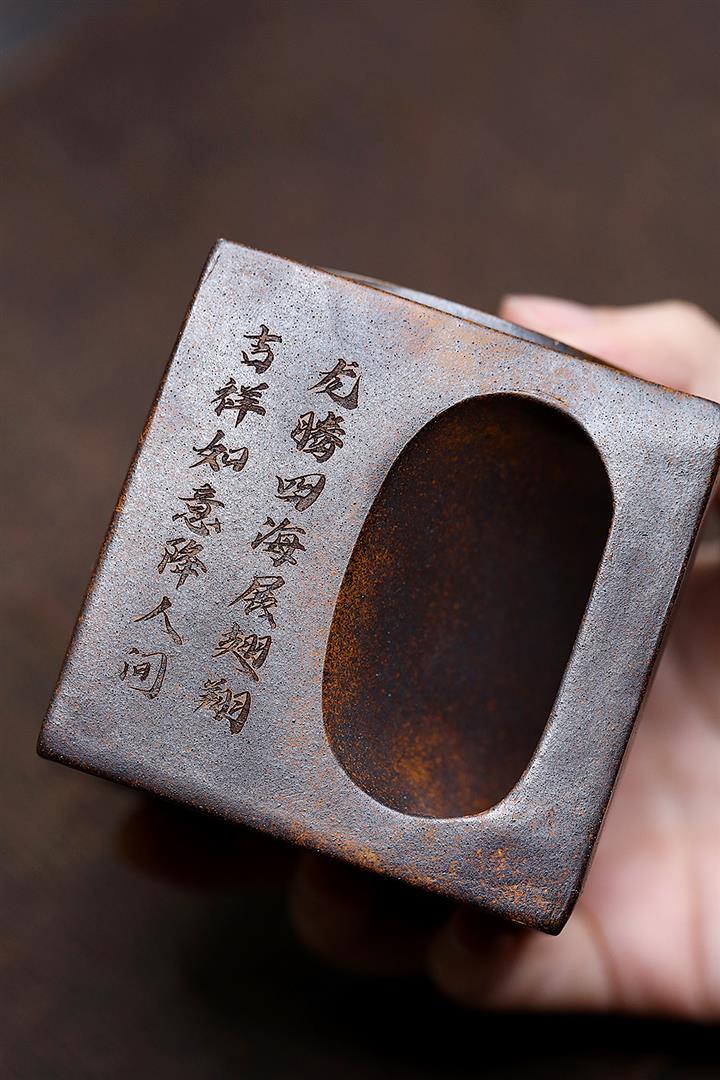 龙腾四海展翅翔
吉祥如意降人间